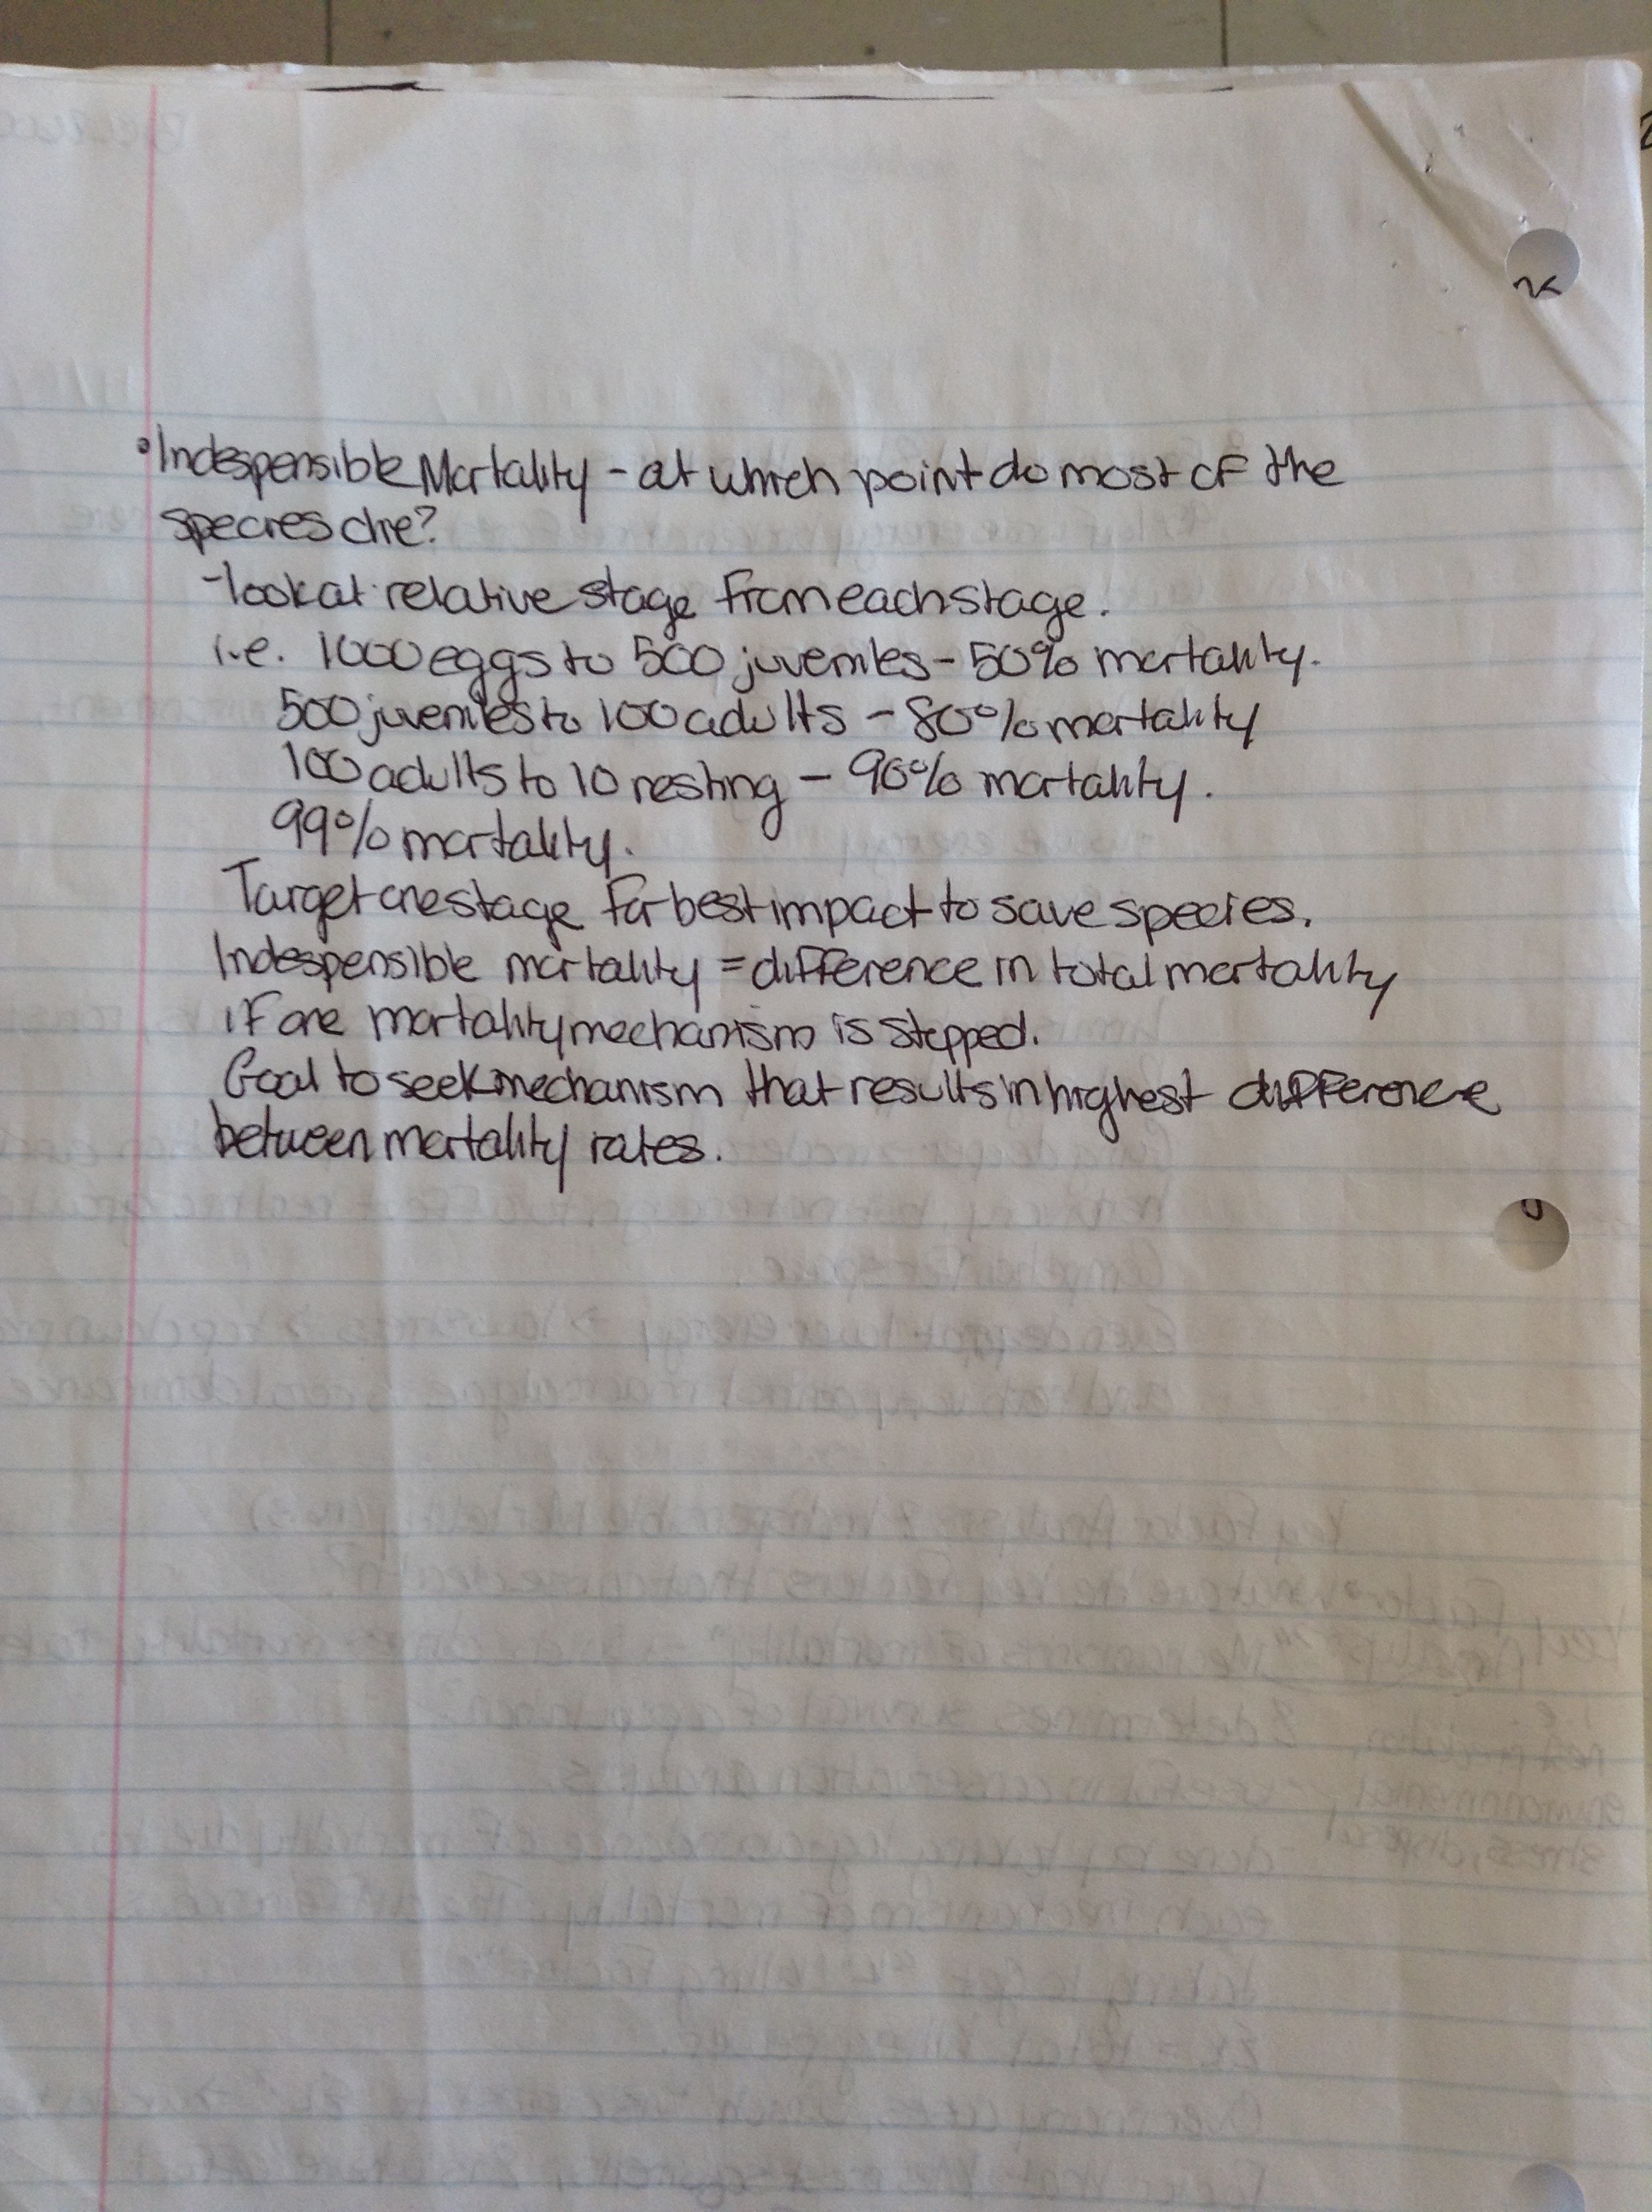 • Indespensible Mortality - at which point do most of the
species die?
- look at relative stage from each stage.
i.e. 1000 eggs to 500 juveniles - 50% mortality.
500 juveniles to 100 adults - 80% mortality
100 adults to 10 nesting - 90% mortality.
99% mortality.
Target one stage for best impact to save species.
Indespensible mortality = difference in total mortality
if one mortality mechanism is stopped.
Goal to seek mechanism that results in highest difference
between mortality rates.